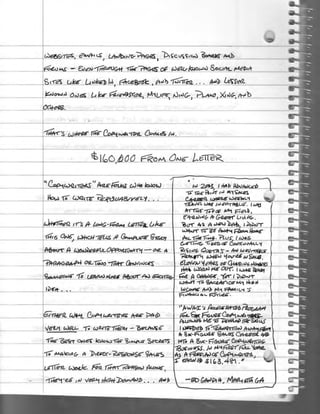 WEBSITES, EMAILS, LANDING PAGES, DISCUSSION BOARDS AND
FORUMS – EVEN THROUGH THE PAGES OF WELL-KNOWN SOCIAL MEDIA
SITES LIKE LINKED IN, FACEBOOK, AND TWITTER ... AND LESSER
KNOWN ONES LIKE FRIENDSTER, MYLIFE, NING, PLAXO, XING, AND
OTHERS.
THAT'S WHERE THE COPYWRITER COMES IN.
$160,000 FROM ONE LETTER
"COPYWRITERS" ARE PEOPLE WHO KNOW
HOW TO WRITE PERSUASIVELY...
WHETHER IT'S A LONG-FORM LETTER LIKE
THIS ONE, WHICH TELLS A COMPLETE STORY
ABOUT A WONDERFUL OPPORTUNITY – OR A
PARAGRAPH OR TWO THAT CONVINCES
SOMEONE TO LEARN MORE ABOUT AN EXCITING
IDEA ...
EITHER WAY, COPYWRITERS ARE PAID
VERY WELL TO WRITE THEM – BECAUSE
THE BEST ONES KNOW THE SIMPLE SECRETS
TO MAKING A DIRECT-RESPONSE SALES
LETTER WORK. FOR THAT REASON ALONE,
THEY'RE IN VERY HIGH DEMAND ... AND
"IN 2003, I HAD ADVANCED
TO THE
CAREER WHERE WEEKLY
TRAVEL WAS INEVITABLE. I WAS
AT THE TOP OF MY FIELD,
EARNING A GREAT LIVING.
BUT AS A NEW DAD, I DIDN'T
WANT TO BE AWAY FROM HOME
ALL THE TIME. PLUS, I WAS
GETTING TIRED OF CONTINUALLY
WHEN YOU'RE IN SALES.
ELEVEN YEARS OF
HAD WORN ME OUT. I WAS READY
FOR A CHANGE, YET I DIDN'T
WANT TO SACRIFICE MY HIGH
INCOME AND MY FAMILY'S
FINANCIAL FUTURE.
"AWAI'S ACCELERATED PROGRAM
FOR SIX-FIGURE COPYWRITING
ALLOWED ME TO DEVELOP THE SKILLS
I NEEDED TO TRANSITION AWAY FROM
A SIX-FIGURE SALES CAREER AND
INTO A SIX-FIGURE COPYWRITING
BUSINESS. IN MY FIRST FULL YEAR
AS A FREELANCE COPYWRITER,
I EARNED $163,481."
– ED GANDIA, MARIETTA GA